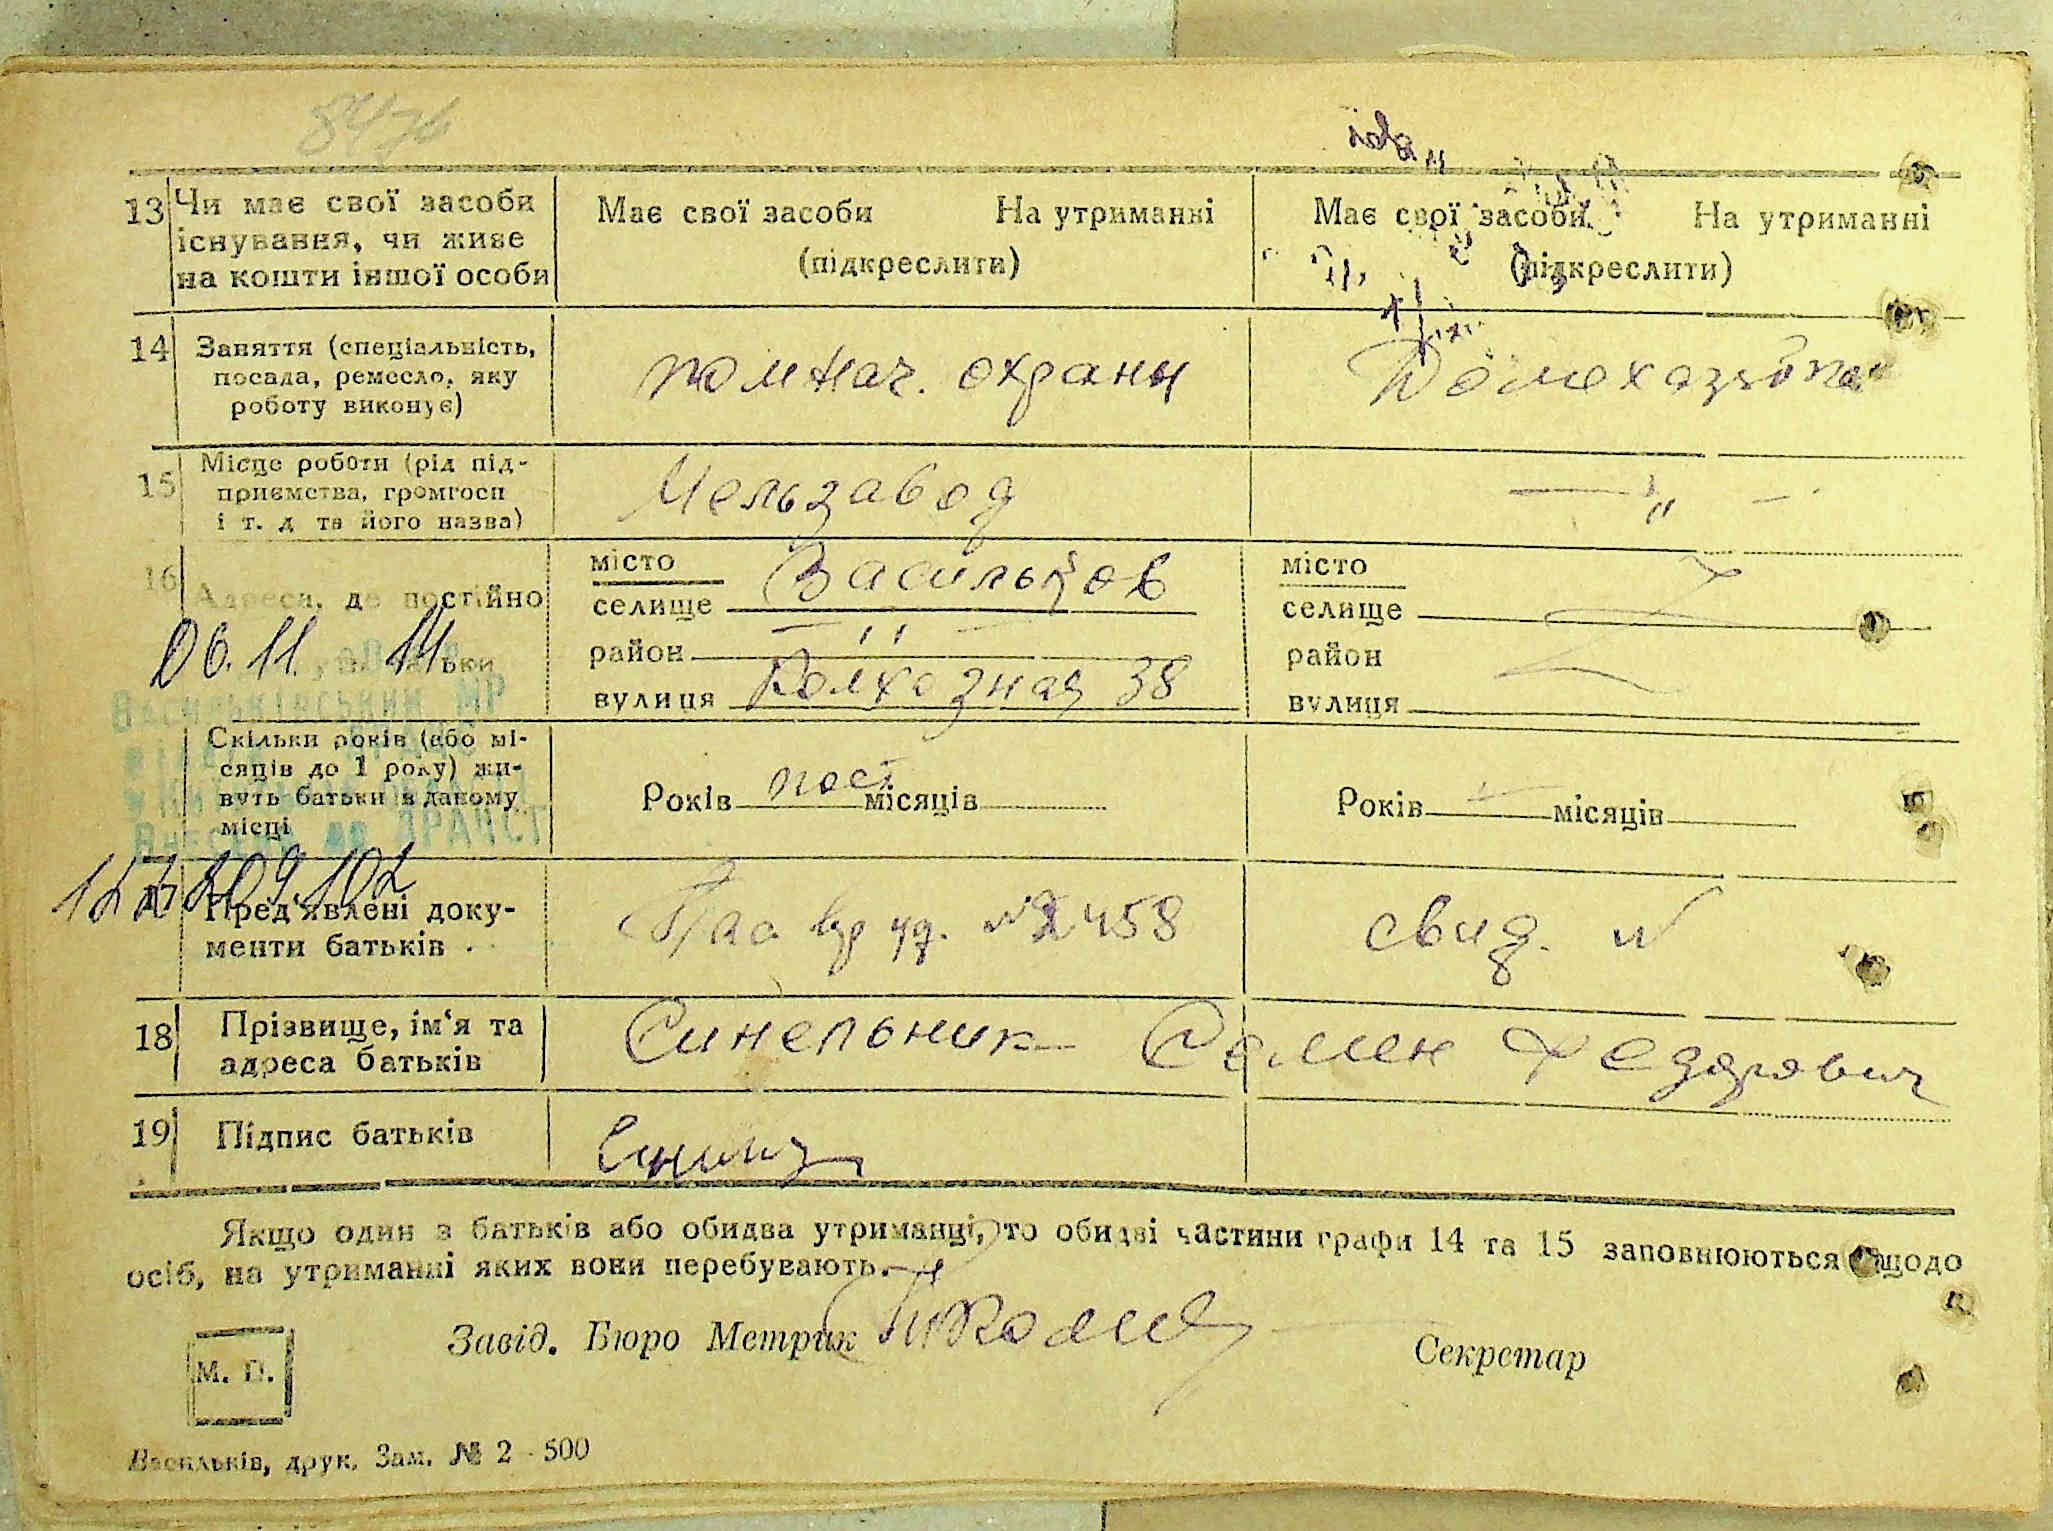 13 Чи має свої засоби існування, чи живе на кошти іншої особи
Має свої засоби На утриманні
(підкреслити)
Має свої засоби На утриманні
(підкреслити)
14 Заняття (спеціальність, посада, ремесло, яку роботу виконує)
помнач. охраны
Домохазяйка
15 Місце роботи (рід підприємства, громгосп і т. д та його назва)
Мельзавод
— " —
16 Адреса, де постійно
батьки
місто
селище Васильков
район — " —
вулиця Колхозная 38
місто
селище
район
вулиця
06.11. 14
Васильківський МР
Скільки років (або місяців до 1 року) живуть батьки в даному місці
Років пост місяців
Років — місяців
Внесено до ДРАЦСГ
Пред'явлені документи батьків
Пас вр уд. № 2458
свид. №
18 Прізвище, ім'я та адреса батьків
Синельник Семен Федорович
19 Підпис батьків
Якщо один з батьків або обидва утриманці, то обидві частини графи 14 та 15 заповнюються щодо
осіб, на утриманні яких вони перебувають.
Завід. Бюро Метрик
Секретар
М. П.
Васильків, друк. Зам. № 2 - 500